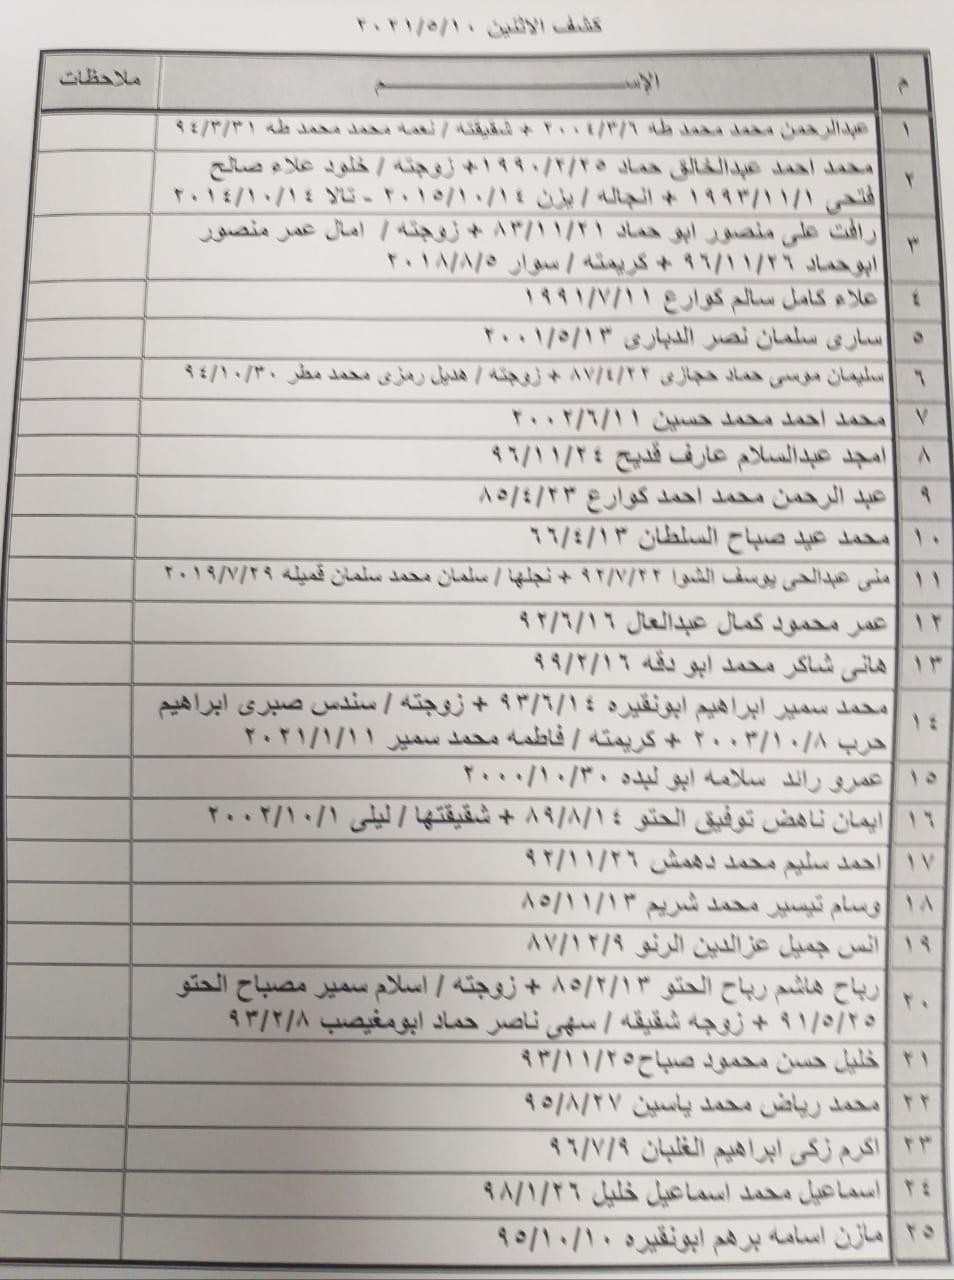 كشف الاثنين ٢٠٢١/٥/١٠
م الإســـــــــــــــم ملاحظات
١ عبدالرحمن محمد محمد طه ٢٠٠٤/٣/٦ + شقيقته / نعمه محمد محمد طه ٩٤/٣/٣١
٢ محمد احمد عبدالخالق حماد ١٩٩٠/٢/٢٥+ زوجته / خلود علاء صالح
فتحى ١٩٩٣/١١/١ + انجاله / يزن ٢٠١٥/١٠/١٤ - تالا ٢٠١٤/١٠/١٤
٣ رافت على منصور ابو حماد ٨٣/١١/٢١ + زوجته / امال عمر منصور
ابوحماد ٩٦/١١/٢٦ + كريمته / سوار ٢٠١٨/٨/٥
٤ علاء كامل سالم كوارع ١٩٩١/٧/١١
٥ سارى سلمان نصر الدبارى ٢٠٠١/٥/١٣
٦ سليمان موسى حماد حجازى ٨٧/٤/٢٢ + زوجته / هديل رمزى محمد مطر ٩٤/١٠/٣٠
٧ محمد احمد محمد حسين ٢٠٠٢/٦/١١
٨ امجد عبدالسلام عارف قديح ٩٦/١١/٢٤
٩ عبد الرحمن محمد احمد كوارع ٨٥/٤/٢٣
١٠ محمد عيد صباح السلطان ٦٦/٤/١٣
١١ منى عبدالحى يوسف الشوا ٩٢/٧/٢٢ + نجلها / سلمان محمد سلمان قميله ٢٠١٩/٧/٢٩
١٢ عمر محمود كمال عبدالعال ٩٢/٦/١٦
١٣ هانى شاكر محمد ابو دقه ٩٩/٢/١٦
١٤ محمد سمير ابراهيم ابونقيره ٩٣/٦/١٤ + زوجته / سندس صبرى ابراهيم
حرب ٢٠٠٣/١٠/٨ + كريمته / فاطمه محمد سمير ٢٠٢١/١/١١
١٥ عمرو رائد سلامه ابو لبده ٢٠٠٠/١٠/٣٠
١٦ ايمان ناهض توفيق الحتو ٨٩/٨/١٤ + شقيقتها / ليلى ٢٠٠٢/١٠/١
١٧ احمد سليم محمد دهمش ٩٢/١١/٢٦
١٨ وسام تيسير محمد شريم ٨٥/١١/١٣
١٩ انس جميل عزالدين الرنو ٨٧/١٢/٩
٢٠ رباح هاشم رباح الحتو ٨٥/٢/١٣ + زوجته / اسلام سمير مصباح الحتو
٩١/٥/٢٥ + زوجه شقيقه / سهى ناصر حماد ابومغيصب ٩٣/٢/٨
٢١ خليل حسن محمود صباح٩٣/١١/٢٥
٢٢ محمد رياض محمد ياسين ٩٥/٨/٢٧
٢٣ اكرم زكى ابراهيم الغلبان ٩٦/٧/٩
٢٤ اسماعيل محمد اسماعيل خليل ٩٨/١/٢٦
٢٥ مازن اسامه برهم ابونقيره ٩٥/١٠/١٠